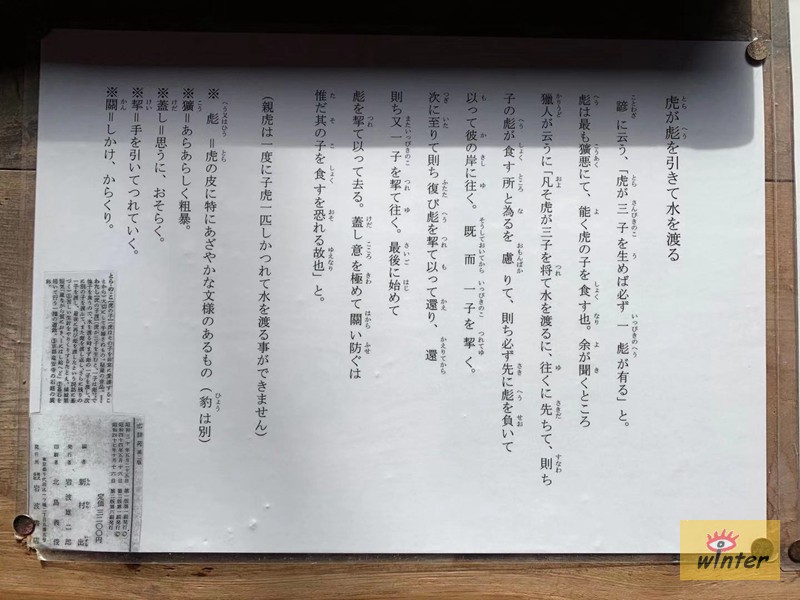 虎が彪を引きて水を渡る
諺に云う、「虎が三子を生めば必ず一彪が有る」と。
彪は最も獷悪にて、能く虎の子を食す也。余が聞くところ
獵人が云うに「凡そ虎が三子を将て水を渡るに、往くに先ちて、則ち
子の彪が食す所と為るを慮りて、則ち必ず先に彪を負いて
以って彼の岸に往く。既而一子を挈く。
次に至りて則ち復び彪を挈て以って還り、還
則ち又一子を挈て往く。最後に始めて
彪を挈て以って去る。蓋し意を極めて關い防ぐは
惟だ其の子を食すを恐れる故也」と。
(親虎は一度に子虎一匹しかつれて水を渡る事ができません)
※彪=虎の皮に特にあざやかな文様のあるもの(豹は別)
※獷=あらあらしく粗暴。
※蓋し=思うに、おそらく。
※挈=手を引いてつれていく。
※關=しかけ、からくり。
定価三二〇〇円
編者 新村出
発行者 岩波雄二郎
発行所 岩波書店
winter